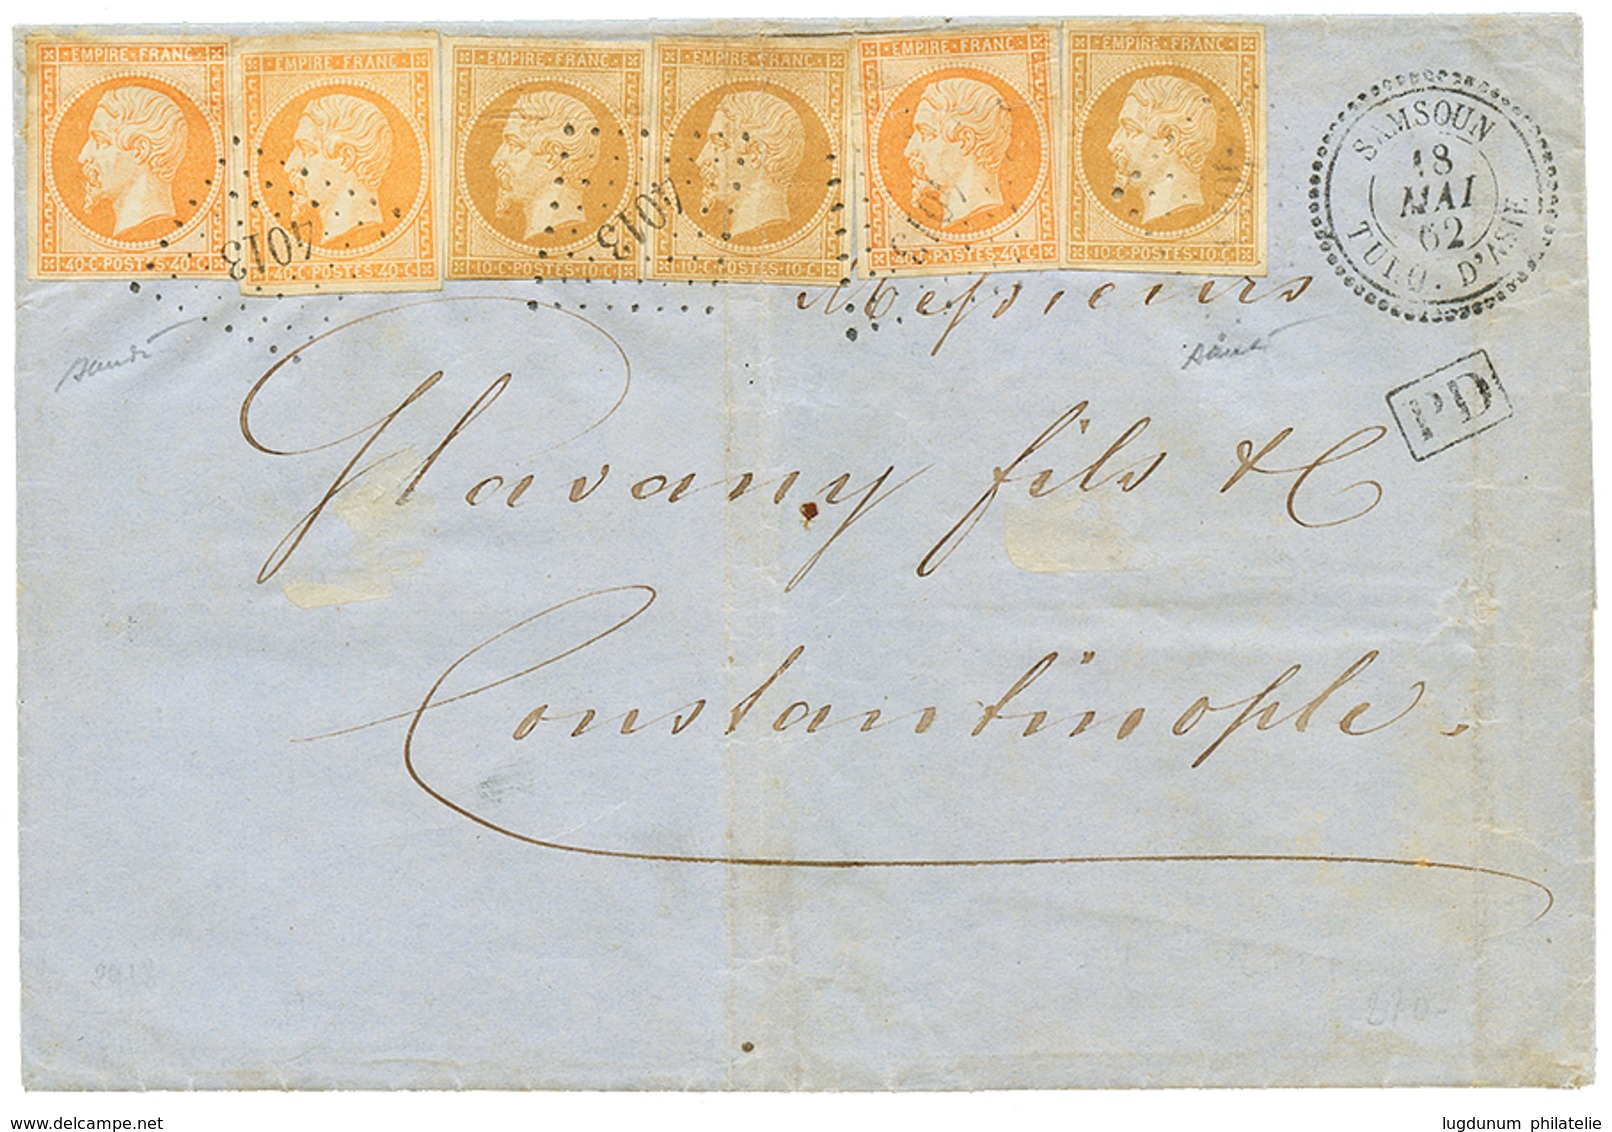 EMPIRE FRANC
40·C·POSTES·40·C
EMPIRE FRANC
40·C·POSTES·40·C
EMPIRE FRANC
10·C·POSTES·10·C
EMPIRE FRANC
10·C·POSTES·10·C
EMPIRE FRANC
40·C·POSTES·40·C
EMPIRE FRANC
10·C·POSTES·10·C
4013
4013
4013
SAMSOUN
18
MAI
62
TURQ. D'ASIE
PD
Messieurs
Glavany fils & C
Constantinople.
delcampe.net
lugdunum philatelie